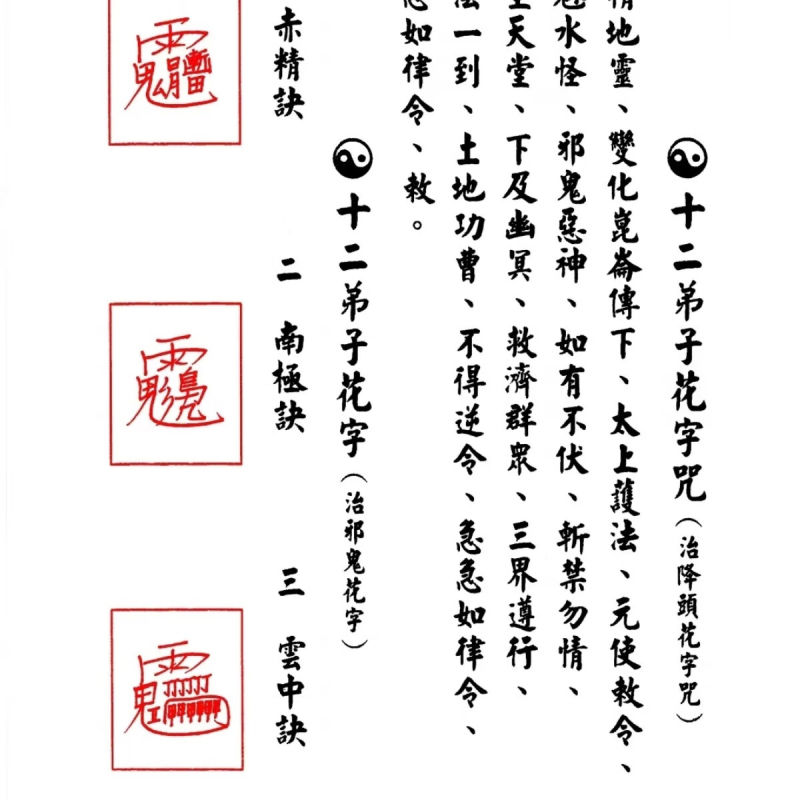 十二弟子花字咒(治降頭花字咒)
地靈、變化崑崙傳下、太上護法、元使敕令、
水怪、邪鬼惡神、如有不伏、斬禁勿情、
天堂、下及幽冥、救濟群眾、三界遵行、
法一到、土地功曹、不得逆令、急急如律令、
如律令、敕。
十二弟子花字(治邪鬼花字)
赤精訣
二 南極訣
三 雲中訣